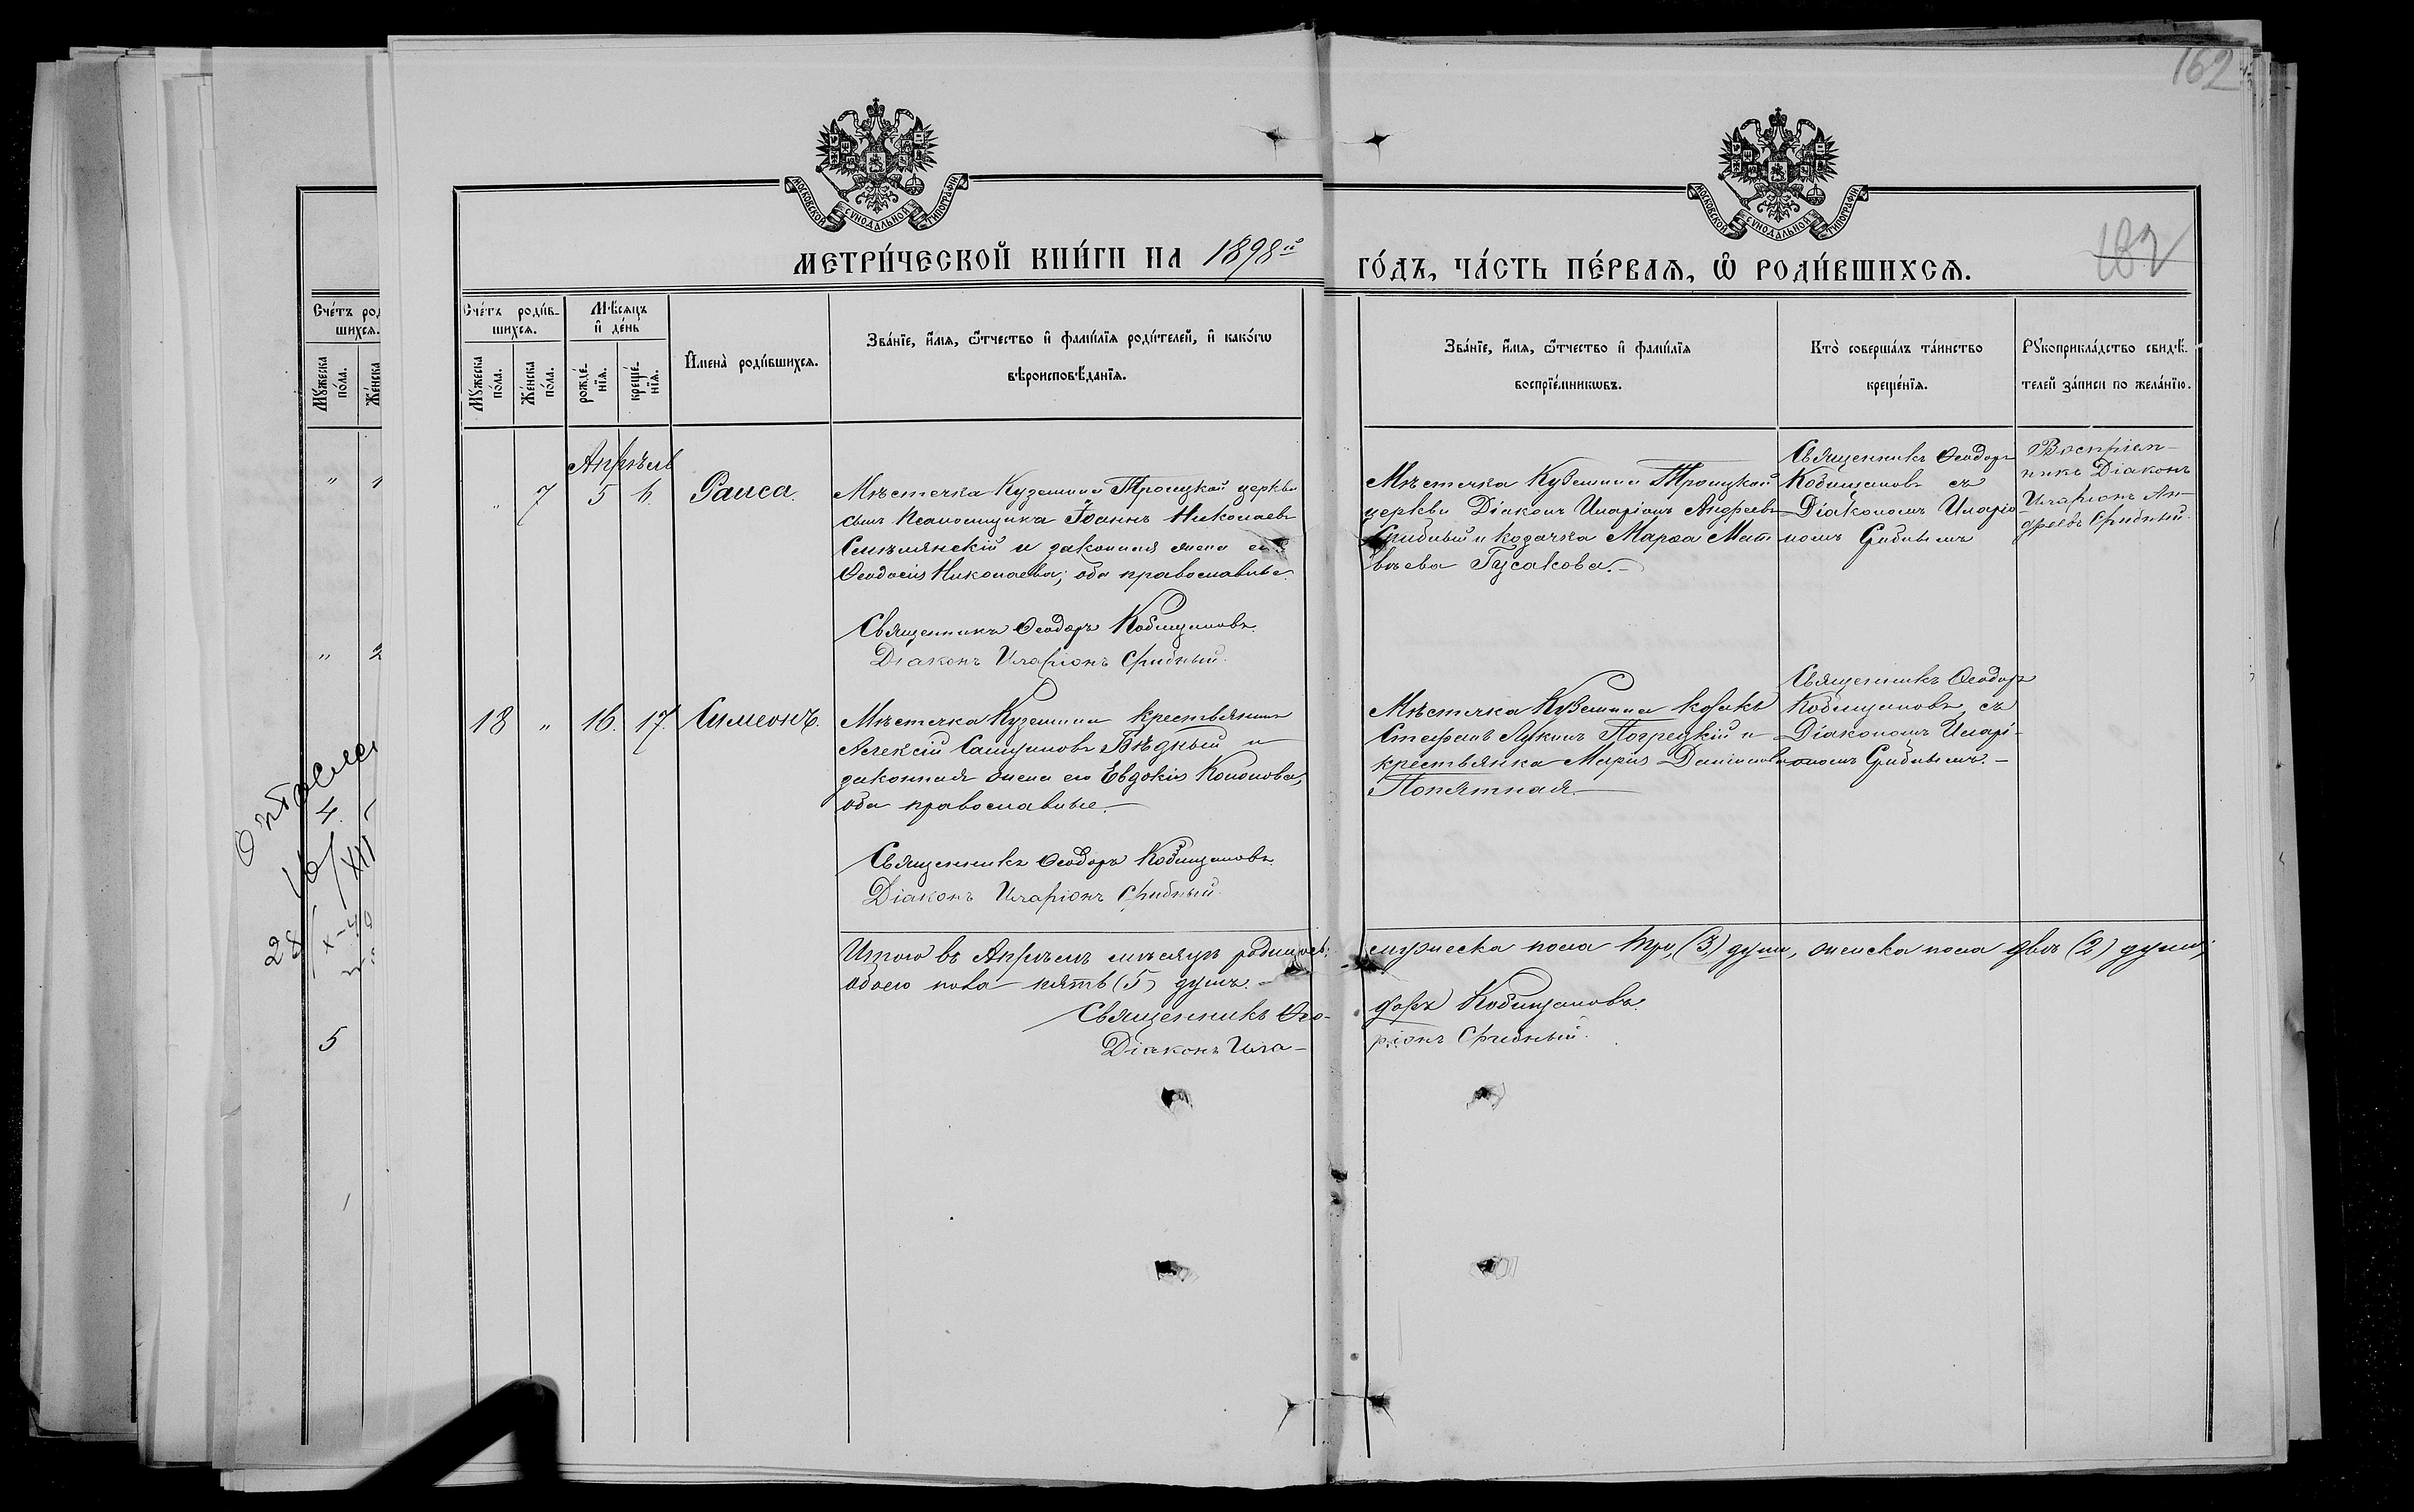 162
МОСКОВСКОЙ СѴНОДАЛЬНОЙ ТИПОГРАФІИ
МОСКОВСКОЙ СѴНОДАЛЬНОЙ ТИПОГРАФІИ
МЕТРИ́ЧЕСКОЙ КНИ́ГИ НА 1898й
ГО́ДЪ, ЧА́СТЬ ПЕ́РВАѦ, Ѿ РОДИ́ВШИХСѦ.
182
Сче́тъ роди́в-
шихсѧ.
Мꙋжеска
по́ла.
Же́нска
по́ла.
Мѣ́сѧцъ
и҆ де́нь
рожде́-
нїѧ.
креще́-
нїѧ.
И҆мена̀ роди́вшихсѧ.
Зва́нїе, и҆́мѧ, ѻ҆́тчество и҆ фамі́лїѧ роди́телей, и҆ како́гѡ
вѣроисповѣ́данїѧ.
Зва́нїе, и҆́мѧ, ѻ҆́тчество и҆ фамі́лїѧ
воспрїе́мникѡвъ.
Кто̀ соверша́лъ та́инство
креще́нїѧ.
Рꙋкоприкла́дство свидѣ́-
телей за́писи по жела́нїю.
Апрѣль
" 7 5 6. Раиса.
Мѣстечка Куземина Троицкой церкви
сынъ Псаломщика Іоаннъ Николаевъ
и законная жена его
Ѳеодосія Николаева; оба православные.
Священникъ Ѳеодоръ Кобищановъ.
Діаконъ Иларіонъ Срибный.
Мѣстечка Куземина Троицкой
церкви Діаконъ Иларіонъ Андреевъ
Срибный и козачка Марѳа Мат
вѣева Гусакова.
Священникъ Ѳеодоръ
Кобищановъ съ
Діакономъ Иларіо
номъ Срибнымъ
Воспріем-
никъ Діаконъ
Иларіонъ Ан-
дреевъ Срибный.
18 " 16. 17. Симеонъ.
Мѣстечка Куземина крестьянинъ
Алексій Бѣдный и
законная жена его Евдокія Кононова,
оба православные.
Священникъ Ѳеодоръ Кобищановъ.
Діаконъ Иларіонъ Срибный.
Мѣстечка Куземина козакъ
Стефанъ Лукинъ Погрецкій и
крестьянка Марія Даніилова
Попятная.
Священникъ Ѳеодоръ
Кобищановъ съ
Діакономъ Иларі-
ономъ Срибнымъ.
Итого въ Апрѣлѣ мѣсяцѣ родилось: мужеска пола три, (3) души, женска пола двѣ (2) души,
обоего пола пять (5) душъ.
Священникъ Ѳео- доръ Кобищановъ.
Діаконъ Ила- ріонъ Срибный.
Сче́тъ род
шихсѧ.
Мꙋжеска
по́ла.
Же́нска
" 1
" 2
4.
16/XII
28/
5